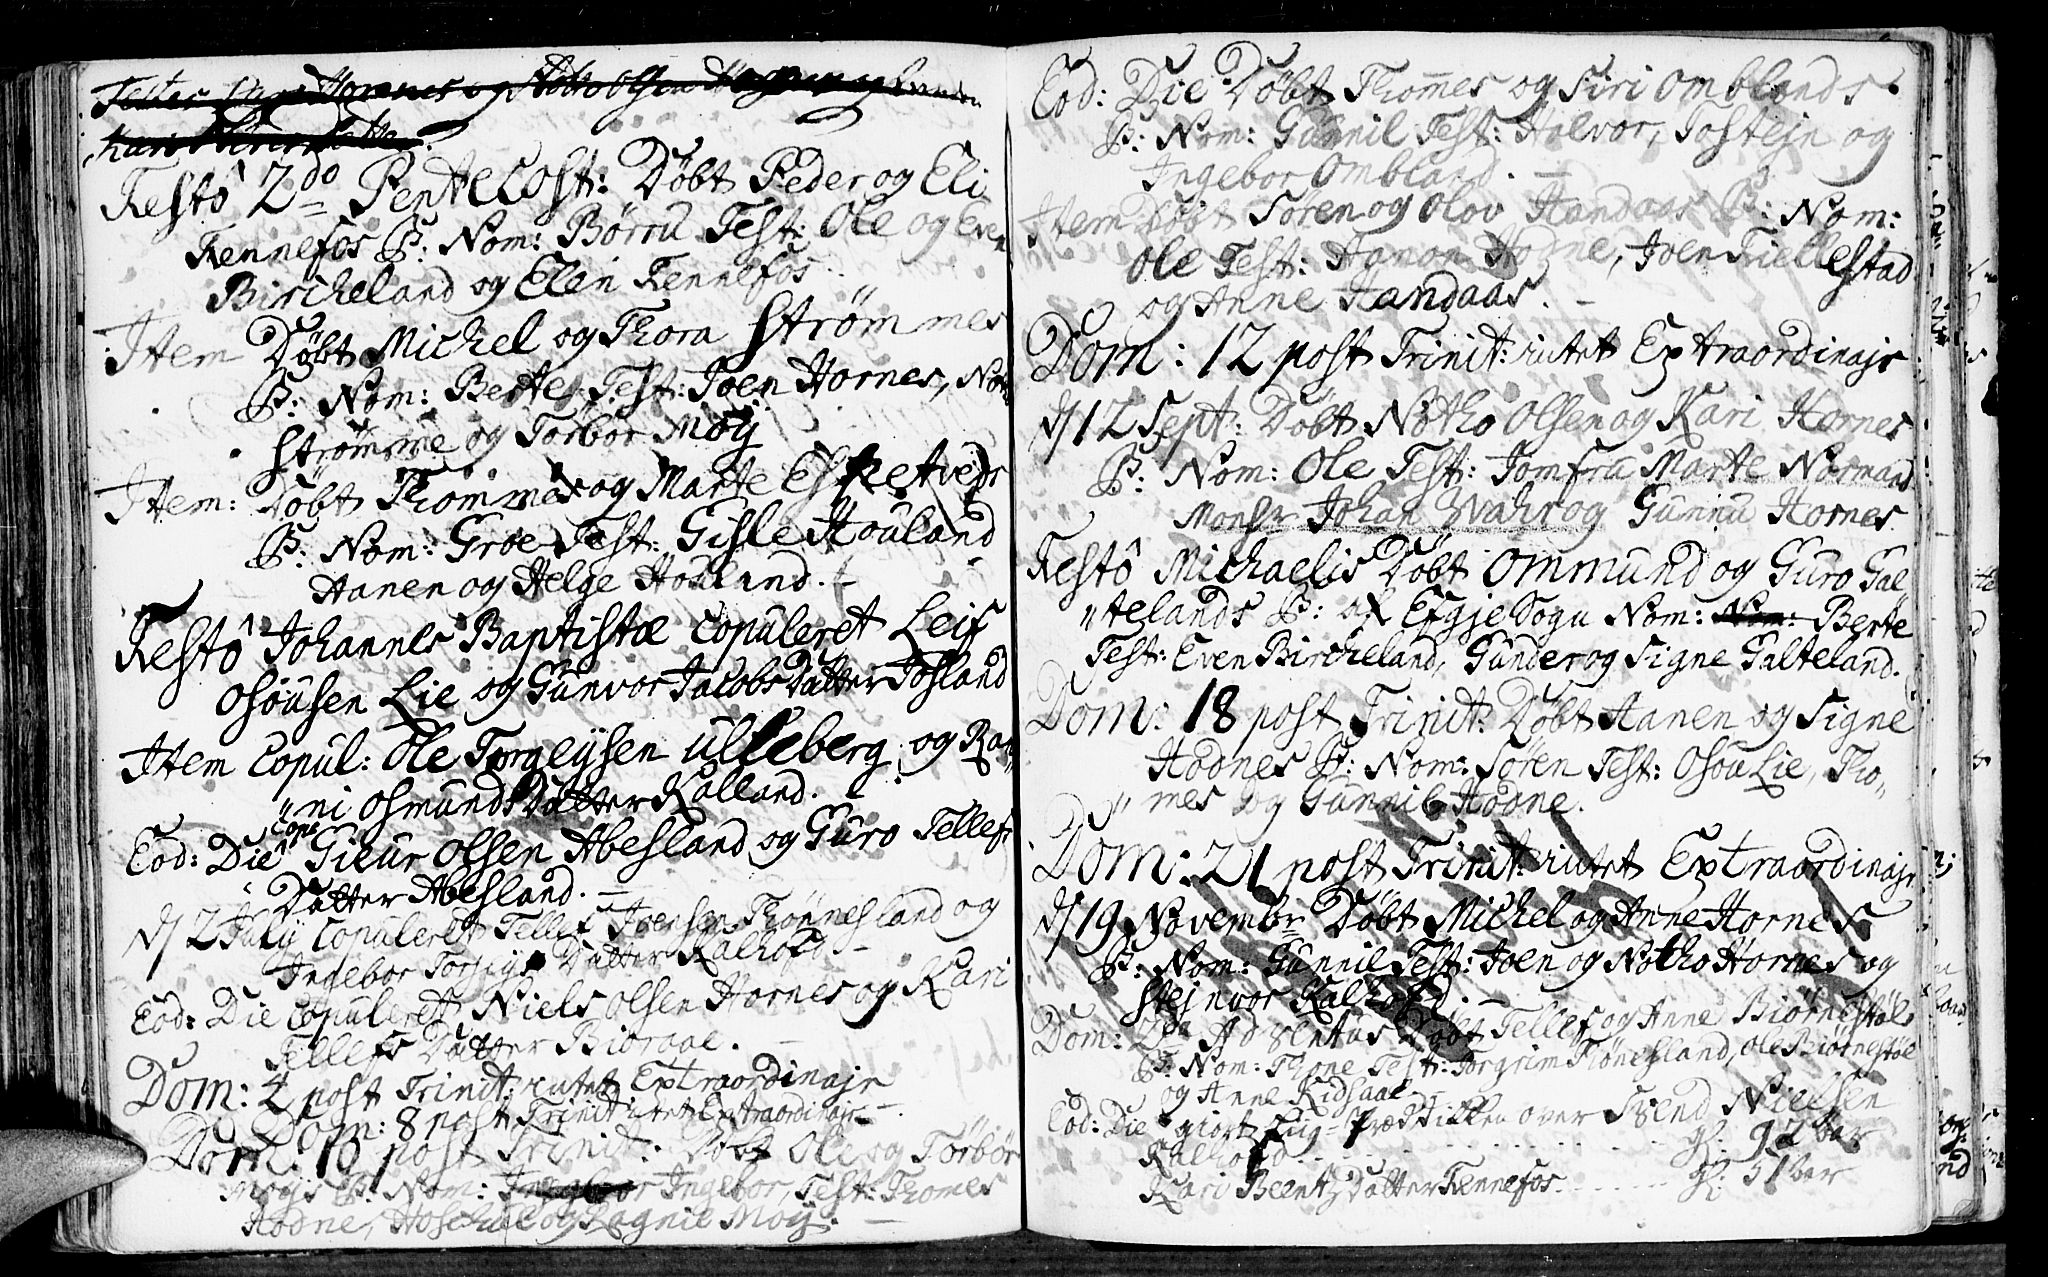 Kari
Festô 2do Pentecost: Døbt Peder og Eli
Fennefos P: Nom: Børru Test: Ole og Even
Bircheland og Elen Fennefos
Item Døbt Michel og Thora Strømmes
P: Nom: Berte Test: Joen Hornes,
Strømme og Torbor Møÿ
Item: Døbt Thommes og Marte Eshetvejt
P: Nom: Groe Test: Gisle Houland
Aanen og Helge Houland.
Festô Johannes Baptistæ Copuleret Leif
Osousen Lie og Gunvor Jacobs Datter Fosland
Item Copul: Ole Torgeÿsen Ulleberg og Ran
"ni Osmunds Datter Kalland.
Eod: Die Cop: Gieur Olsen Abesland og Guro Tellefs
Datter Abesland.
d/ 2 Julÿ Copuleret Tellef Joensen Thønnesland og
Ingebor Datter Kalhovd
Eod: Die Copuleret Niels Olsen Hornes og Kari
Tellefs Datter Bioraae.
Dom: 4 post Trinit: intet Extraordinajr
Dom: 8 post Trinit intet Extraordinajr
Dom: 10 post Trinit: Døbt Ole og Torbor
Møÿs P: Nom: Ingebor, Test: Thomes
Hodne, og Ragnil Møÿ.
Eod: Die Døbt Thom̄es og Siri Omblands
P: Nom: Gunnil Test: Halvor, Tostejn og
Ingebor Ombland.
Item Døbt Søren og Olov Handaas P: Nom:
Ole Test: Aanon Hodne, Joen Fiellestad
og Anne Haandaas.
Dom: 12 post Trinit: intet Extraordinajr
d/ 12 Sept: Døbt Notho Olsen og Kari Hornes
P: Nom: Ole Test: Jomfru Marte Normand
Monsr Johan Wahr og Gunnu Hornes
Festô Michaelis Døbt Ommund og Guro Gal
"telands P: af Efgje Sogn Nom: Berte
Test: Even Bircheland, Gunder og Signe Galteland.
Dom: 18 post Trinit: Døbt Aanen og Signe
Hodnes P: Nom: Søren Test: Osou Lie, Tho„
"mes og Gunnil Hodne.
Dom: 21 post Trinit: intet Extraordinajr
d/ 19 Novembr Døbt Michel og Anne Hornes
P: Nom: Gunnil Test: Joen og Notho Hornes og
Stejnvor Kalhovd.
Dom: 2da Adventus Døbt Tellef og Anne Biørnestøl
P: Nom: Thone Test: Torgrim Tønnesland, Ole Biørnestøl
og Anne Kidsaae
Eod: Die giort Liig-Prædicken over Svend Nielsen
Kalhovd gl. 92 aar
Kari Beentz Datter Fennefos gl: 51 aar